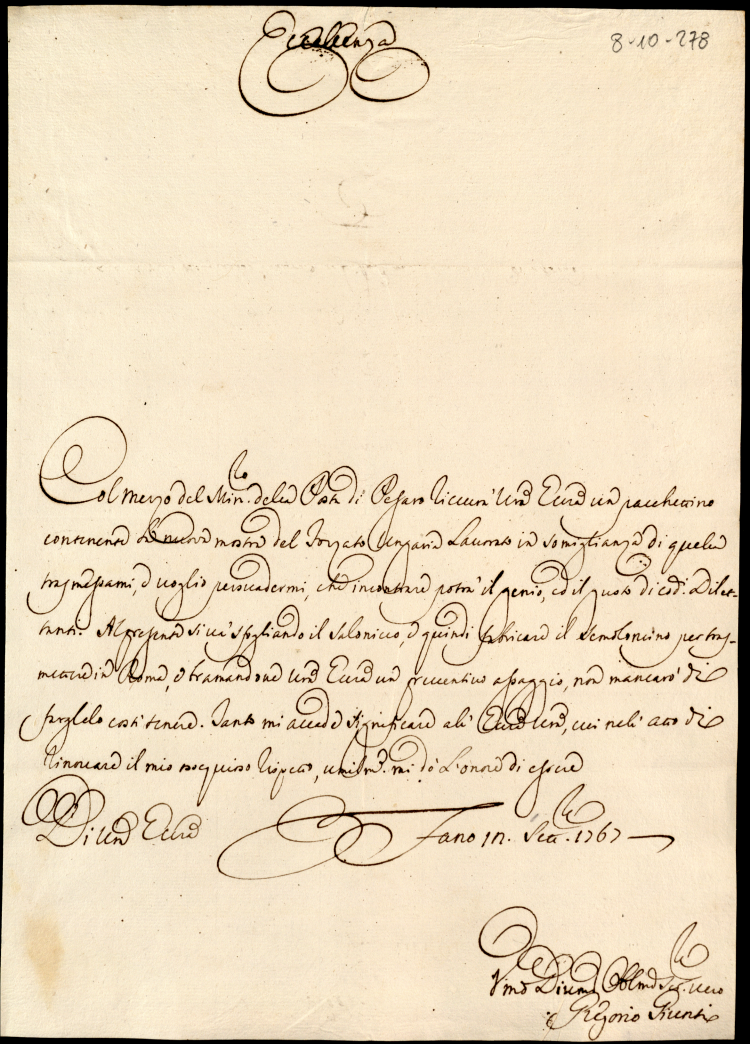 Eccellenza
8-10-278
Col mezzo del Min.ro della Posta di Pesaro riceverà Vra Eccza un pacchettino
continente le nuove mostre del Tonzato Ungaria Lavorato in somiglianza di quella
trasmessami, e voglio persuadermi, che incontrare potrà il genio, ed il gusto di cod.i Dilet-
tanti. Al presente si và spogliando il Salonicco, e quindi fabricare il Semoloncino per tras-
mettere in Roma, e bramandone Vra Eccza un preventivo assaggio, non mancarò di
farglelo costì tenere. Tanto mi accade significare all' Eccza Vra, cui nell' atto di
rinovare il mio ossequioso rispetto, umilm.e mi dò l'onore di essere
Di Vra Eccza
Fano Sett.e 1767
Vmo Divmo Oblmo Ser.re vero
Gregorio